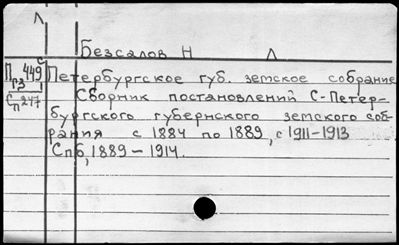 Л
Безсалов Н Л
П 449 с Петербургское губ. земское собрание
Г3
Сп 247 Сборник постановлений С-Петер-
бургского губернского земского соб-
рания с 1884 по 1889, с 1911-1913
Спб, 1889 - 1914.